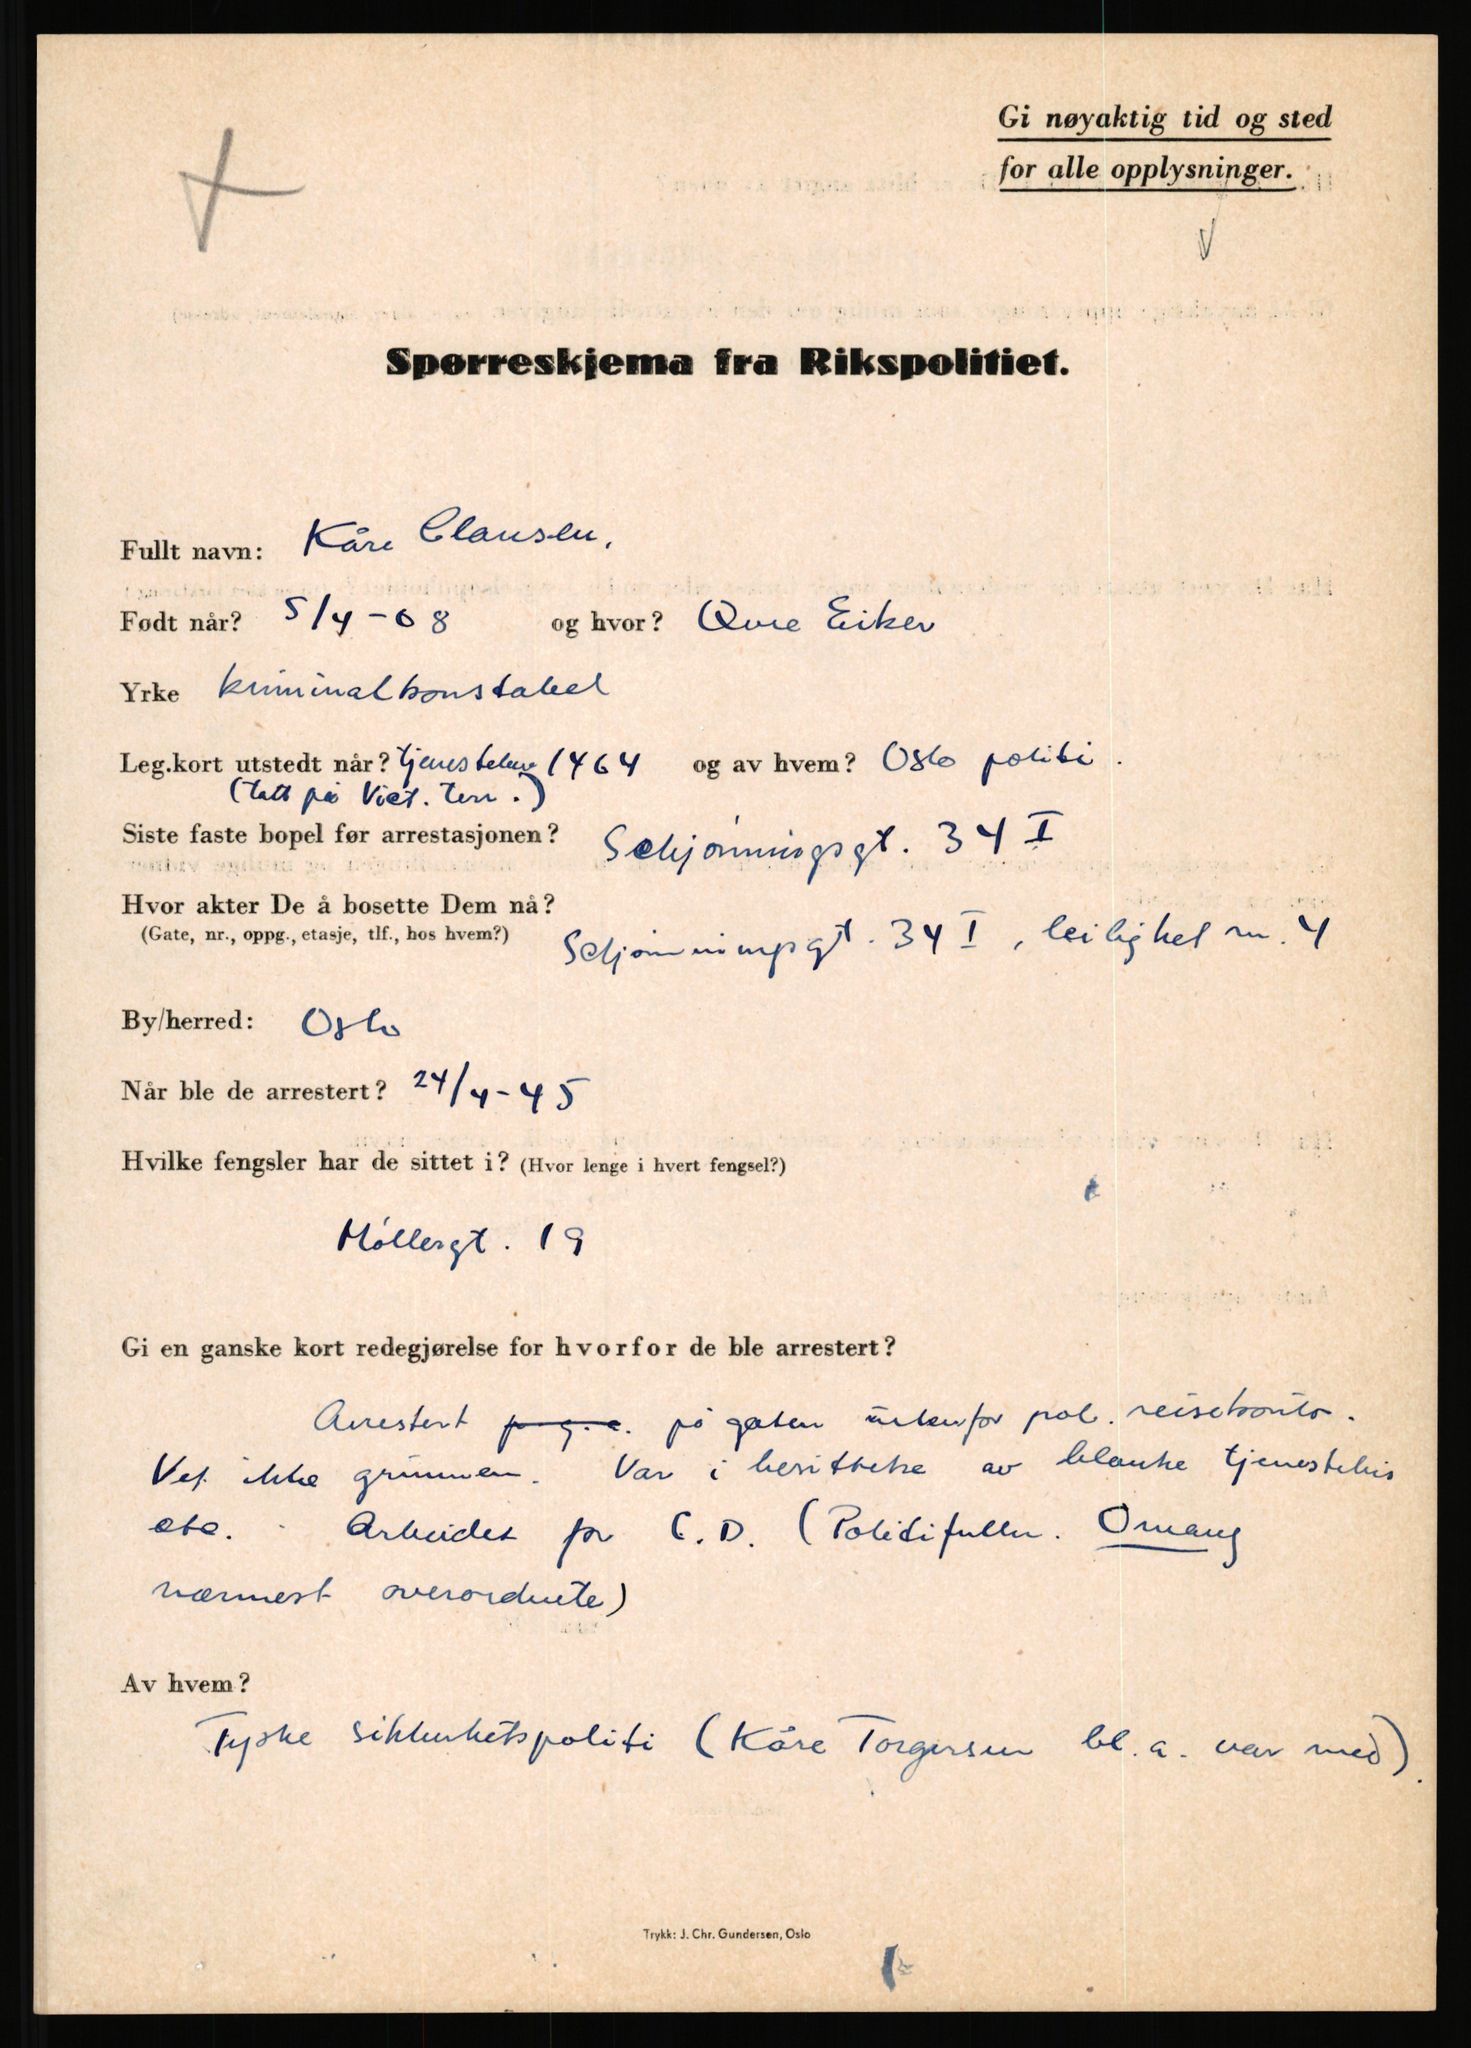 Gi nøyaktig tid og sted
for alle opplysninger.
Spørreskjema fra Rikspolitiet.
Fullt navn: Kåre Clausen.
Født når? 5/4-08 og hvor? Øvre Eiker
Yrke kriminalkonstabel
Leg.kort utstedt når? tjenestebevis 1464 og av hvem? Oslo politi.
(tatt på Vict. Terr.)
Siste faste bopel før arrestasjonen? Schjønningsgt. 34 I
Hvor akter De å bosette Dem nå?
(Gate, nr., oppg., etasje, tlf., hos hvem?) Schjønningsgt. 34 I, leilighet nr. 4
By/herred: Oslo
Når ble de arrestert? 24/4-45
Hvilke fengsler har de sittet i? (Hvor lenge i hvert fengsel?)
Møllergt. 19
Gi en ganske kort redegjørelse for hvorfor de ble arrestert?
Arrestert på gaten utenfor pol. reisekontor.
Vet ikke grunnen. Var i besittelse av blanke tjenestebevis
etc. Arbeidet for C.D. (Politifullm. Omang
nærmest overordnete)
Av hvem?
Tyske sikkerhetspoliti (Kåre Torgersen bl.a. var med).
Trykk: J. Chr. Gundersen, Oslo